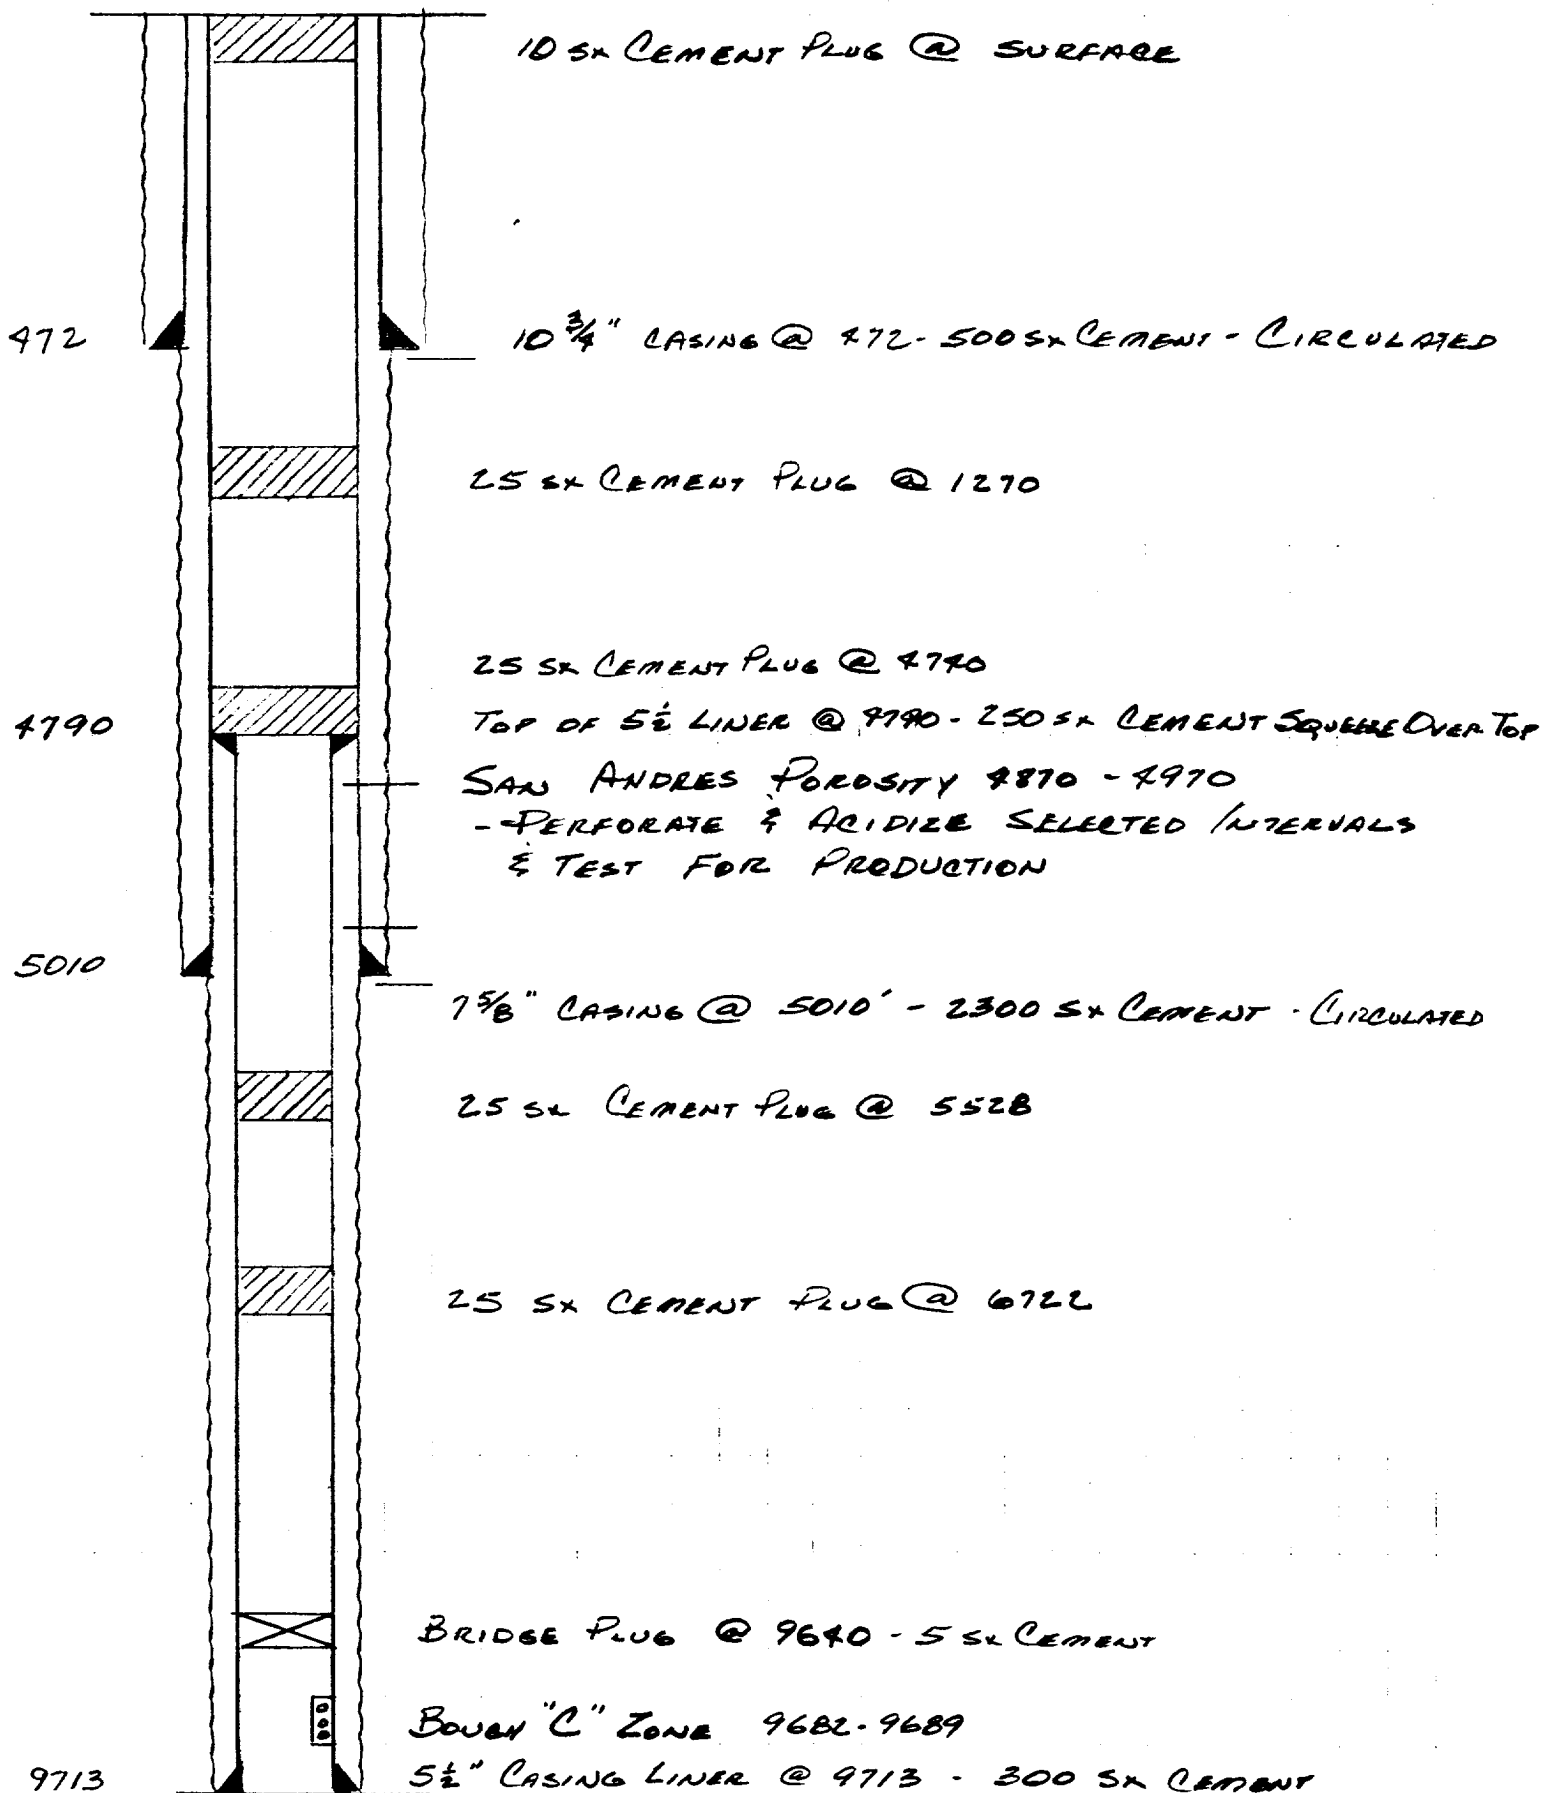 10 SX CEMENT PLUG @ SURFACE
472
10 3/4" CASING @ 472 - 500 SX CEMENT - CIRCULATED
25 SX CEMENT PLUG @ 1270
25 SX CEMENT PLUG @ 4740
4790
TOP OF 5 1/2 LINER @ 4790 - 250 SX CEMENT SQUEEZE OVER TOP
SAN ANDRES POROSITY 4870 - 4970
- PERFORATE & ACIDIZE SELECTED INTERVALS
& TEST FOR PRODUCTION
5010
7 5/8" CASING @ 5010' - 2300 SX CEMENT - CIRCULATED
25 SX CEMENT PLUG @ 5528
25 SX CEMENT PLUG @ 6722
BRIDGE PLUG @ 9640 - 5 SX CEMENT
BOUGH "C" ZONE 9682-9689
9713
5 1/2" CASING LINER @ 9713 - 300 SX CEMENT